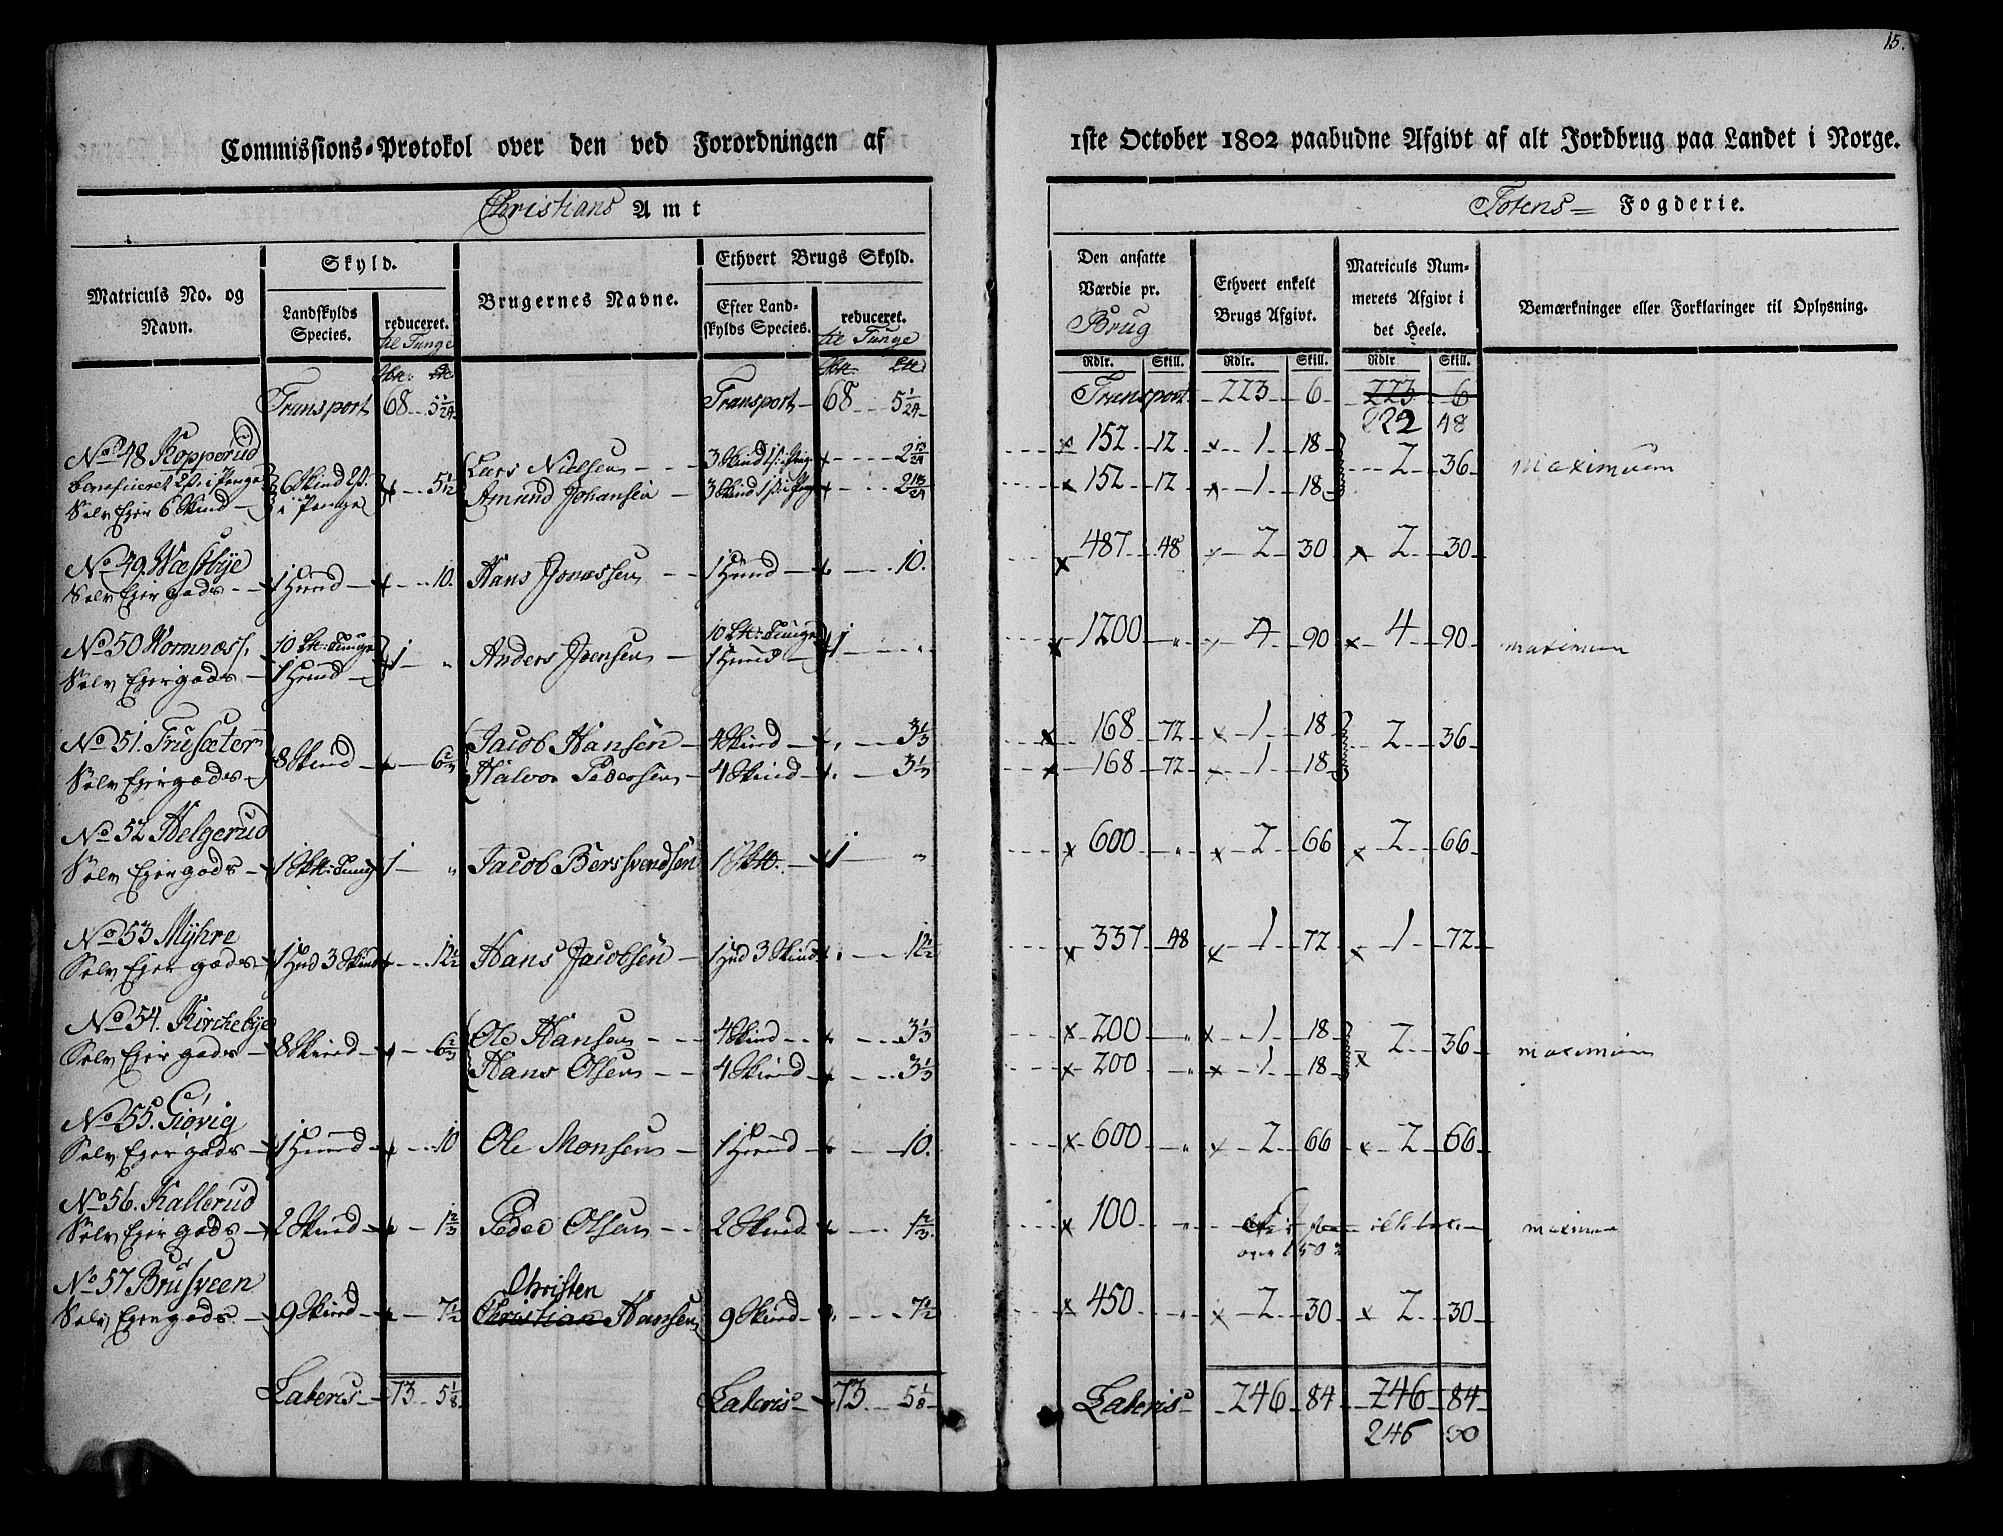 15.
Commissions-Protokol over den ved Forordningen af 1ste October 1802 paabudne Afgivt af alt Jordbrug paa Landet i Norge.
Christians Amt
Totens Fogderie.
Matriculs No. og Navn.
Skyld.
Landskylds Species.
reduceret.
til Tunge
Brugernes Navne.
Ethvert Brugs Skyld.
Efter Landskylds Species.
reduceret.
til Tunge
Den ansatte Værdie pr. Brug
Ethvert enkelt Brugs Afgivt.
Matriculs Nummerets Afgivt i det Heele.
Bemærkninger eller Forklaringer til Oplysning.
Rdlr. Skill. Rdlr. Skill. Rdlr Skill.
Transport 68 5 1/24 Transport 68 5 1/24 Transport 223 6 223 6
222 48
No 48 Kopperud
beneficeret 2 s. i Penge 6 Skind 2 s. i Penge 5 11/12
Selv Ejer 6 Skind
Lars Nielsen 3 Skind 1 s. i Penge 2 13/24 152 12 1 18 2 36 maximum
Amund Johansen 3 Skind 1 s. i Penge 2 13/24 152 12 1 18
No 49. Wæstbye
Selv Ejer gods 1 Hund 10. Hans Jonassen 1 Hund 10. 487 48 2 30 2 30
No 50 Kornnæss.
Selv Ejer gods 10 Lit: Tunge 1 Hund 1 " Anders Joensen 10 Lit: Tunge 1 Hund 1 " 1200 " 4 90 4 90 maximum
No 51. Trusæter
Selv Ejer gods 8 Skind 6 2/3 Jacob Hansen 4 Skind 3 1/3 168 72 1 18 2 36
Halvor Pedersen 4 Skind 3 1/3 168 72 1 18
No 52 Helgerud
Selv Ejer gods 1 Skt: Tunge 1 " Jacob Berssvendsen 1 Skt. 1 " 600 " 2 66 2 66
No 53 Myhre
Selv Ejer gods 1 Hud 3 Skind 12 1/2 Hans Jacobsen 1 Hud 3 Skind 12 1/2 337 48 1 72 1 72
No 54. Kirchebye
Selv Ejer gods 8 Skind 6 2/3 Ole Hansen 4 Skind 3 1/3 200 " 1 18 2 36 maximum
Hans Olsen 4 Skind 3 1/3 200 " 1 18
No 55. Giøvig
Selv Ejer gods 1 Hund 10 Ole Monsen 1 Hund 10. 600 " 2 66 2 66
No 56. Kallerud
Selv Ejer gods 2 Skind 1 2/3 Peder Olsen 2 Skind 1 2/3 100 " maximum
No 57. Brusveen
Selv Ejer gods 9 Skind 7 1/2 Christen
Christian Hansen 9 Skind 7 1/2 450 " 2 30 2 30
Lateris 73 5 1/8 Lateris 73 5 1/8 Lateris 246 84 246 84
246